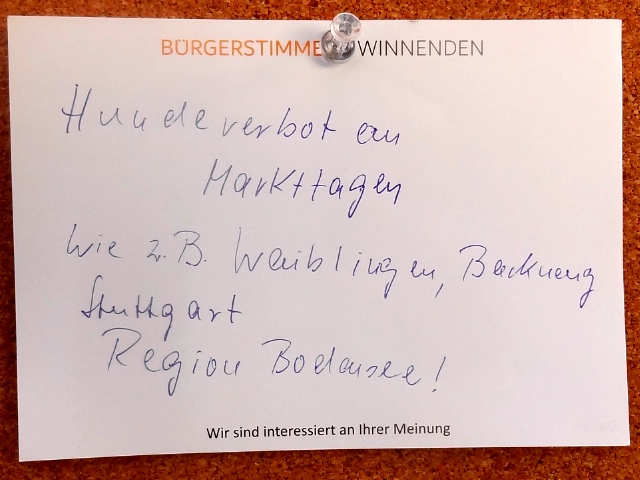 BÜRGERSTIMME WINNENDEN
Hundeverbot an
Markttagen
Wie z.B. Waiblingen, Backnang
Stuttgart
Region Bodensee!
Wir sind interessiert an Ihrer Meinung